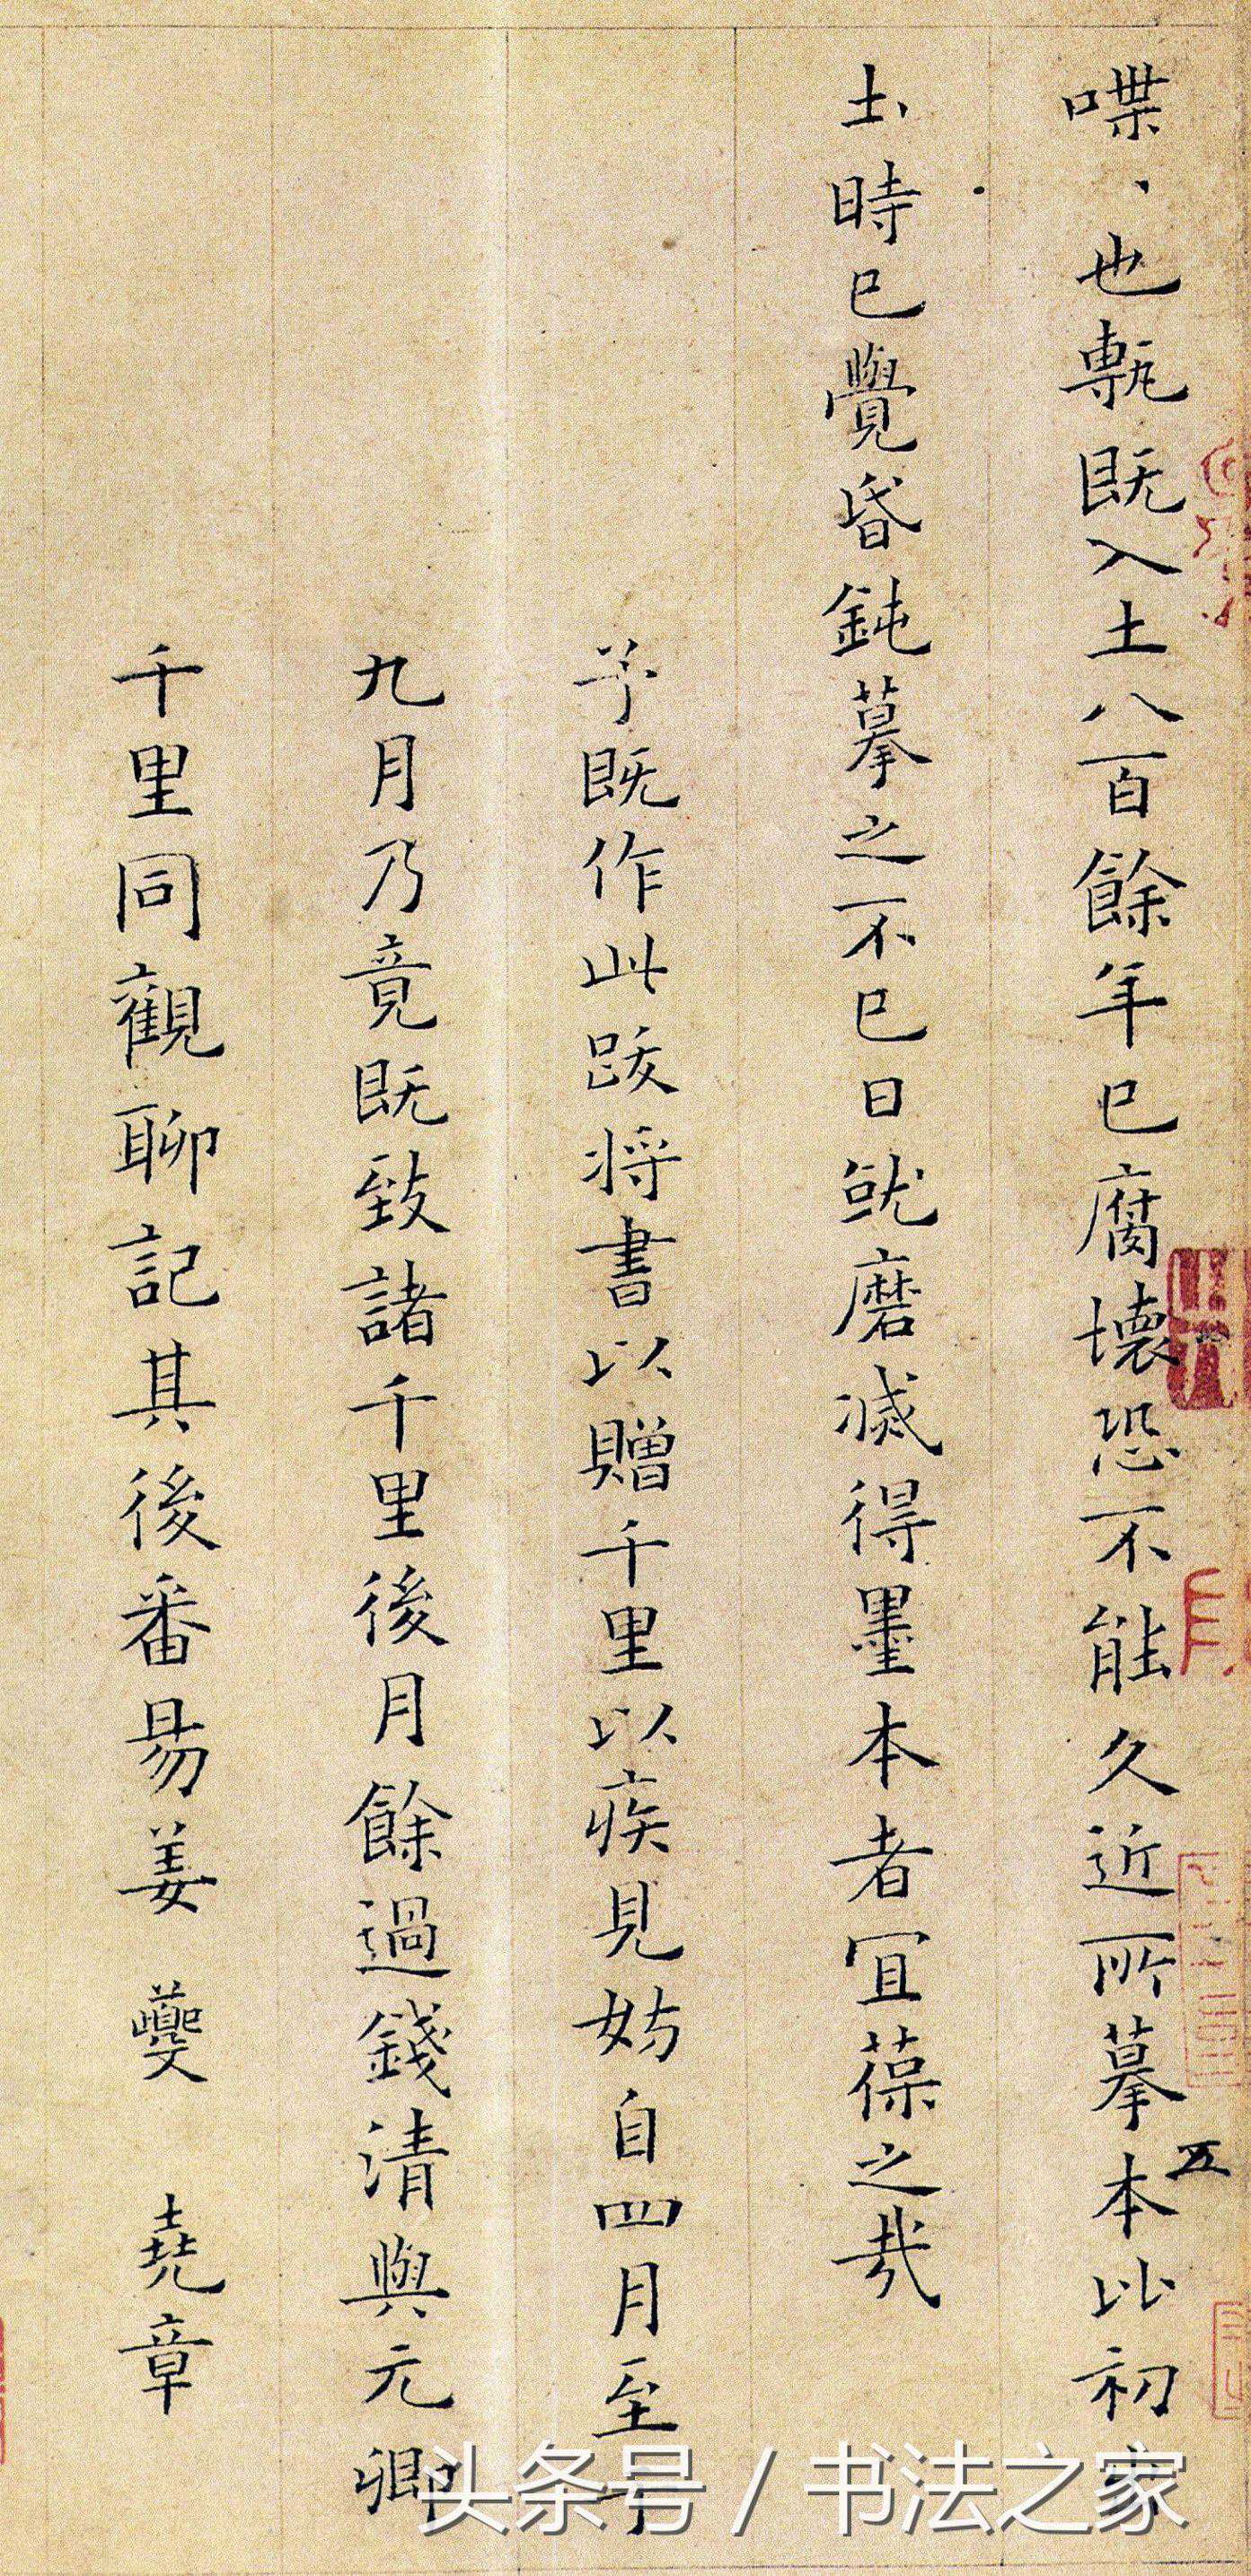 喋、、也甎既入土八百餘年已腐壞恐不能久近所摹本比初
土時已覺昏鈍摹之不已日就磨滅得墨本者宜葆之哉
予既作此跋将書以贈千里以疾見妨自四月至
九月乃竟既致諸千里後月餘過錢清與元卿
千里同觀聊記其後番昜姜夔堯章
五
头条号 / 书法之家